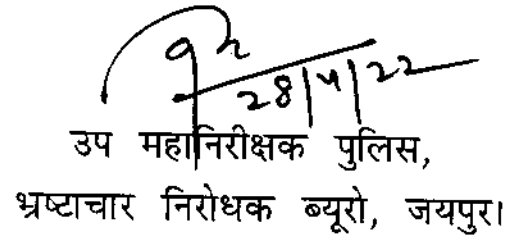 28/4/22
उप महानिरीक्षक पुलिस,
भ्रष्टाचार निरोधक ब्यूरो, जयपुर।